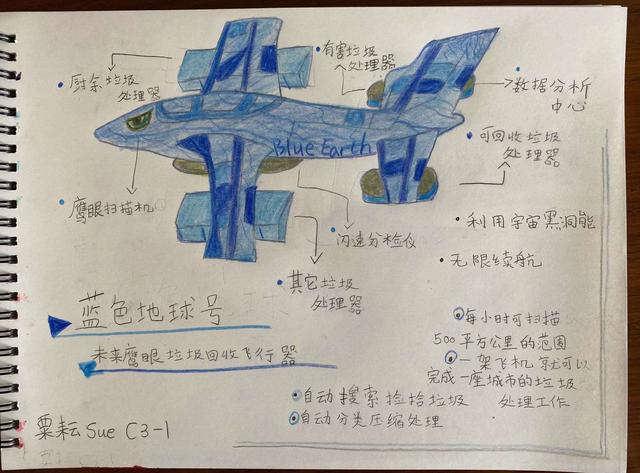 厨余垃圾
处理器
有害垃圾
处理器
数据分析
中心
Blue Earth
可回收垃圾
处理器
鹰眼扫描机
闪速分检仪
利用宇宙黑洞能
无限续航
其它垃圾
处理器
蓝色地球号
未来鹰眼垃圾回收飞行器
每小时可扫描
500平方公里的范围
一架飞机就可以
完成一座城市的垃圾
处理工作
自动搜索捡拾垃圾
自动分类压缩处理
粟耘Sue C3-1